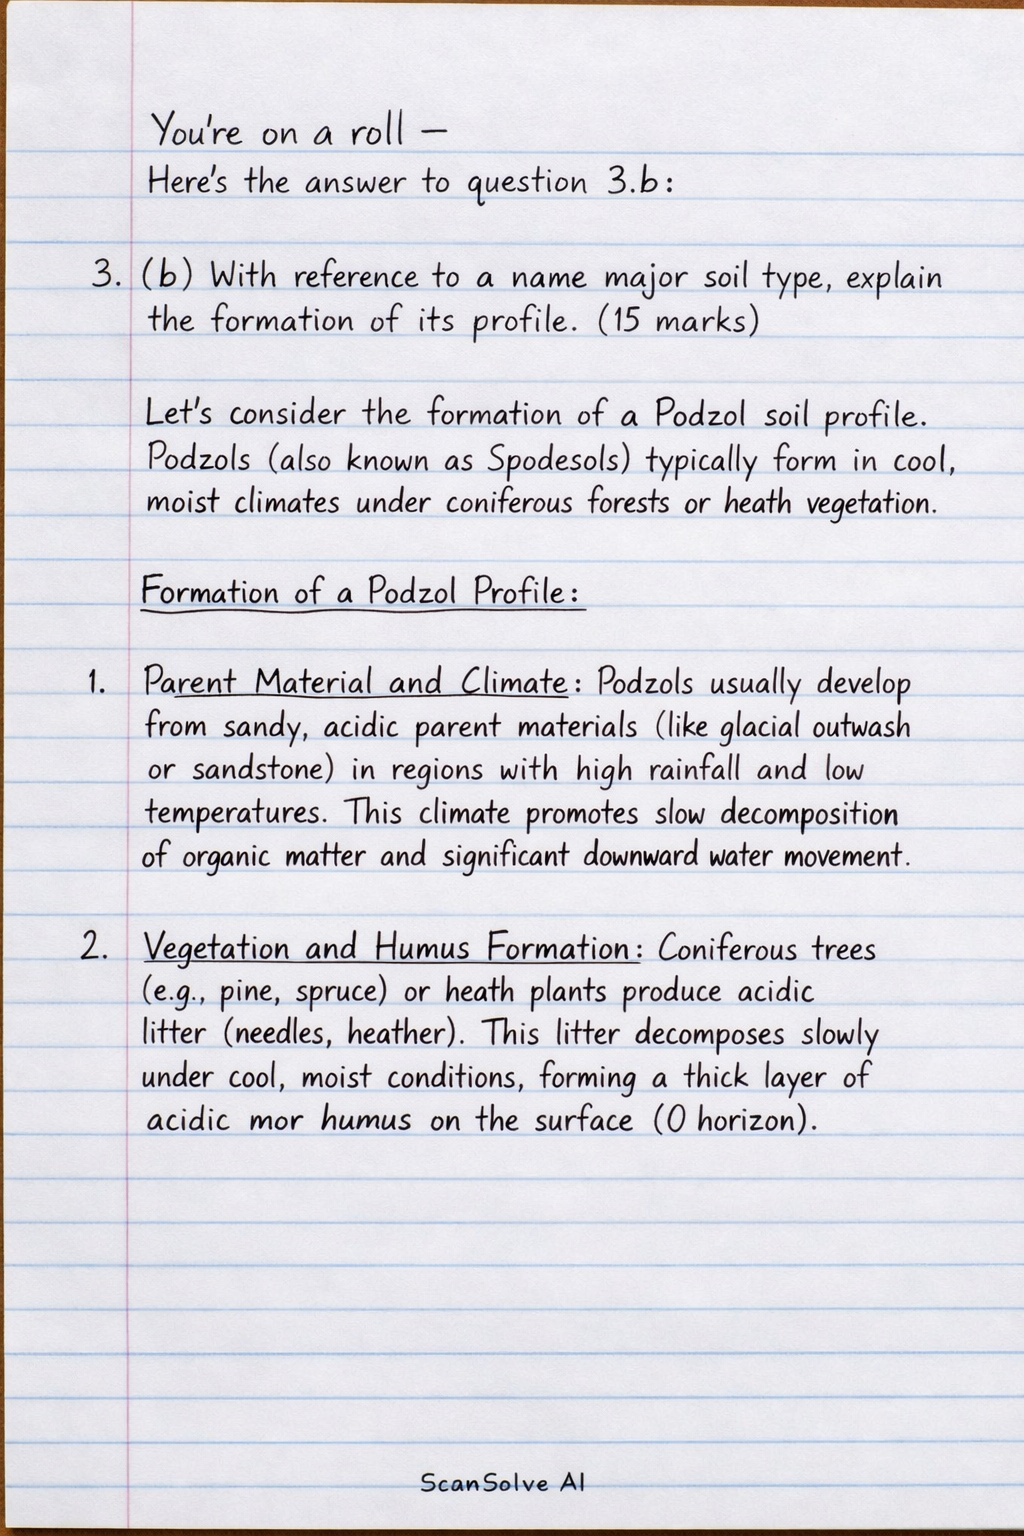 You're on a roll —
Here's the answer to question 3.b:
3. (b) With reference to a name major soil type, explain
the formation of its profile. (15 marks)
Let's consider the formation of a Podzol soil profile.
Podzols (also known as Spodesols) typically form in cool,
moist climates under coniferous forests or heath vegetation.
Formation of a Podzol Profile:
1. Parent Material and Climate: Podzols usually develop
from sandy, acidic parent materials (like glacial outwash
or sandstone) in regions with high rainfall and low
temperatures. This climate promotes slow decomposition
of organic matter and significant downward water movement.
2. Vegetation and Humus Formation: Coniferous trees
(e.g., pine, spruce) or heath plants produce acidic
litter (needles, heather). This litter decomposes slowly
under cool, moist conditions, forming a thick layer of
acidic mor humus on the surface (O horizon).
ScanSolve AI